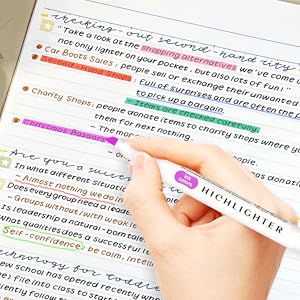 checking-out second-hand city
"Take a look at the shopping alternatives we've come
not only lighter on your pocket, but also lots of fun!"
Car Boots Sales: people sell or exchange their unwanted
Second-Hand Shops:
Full of surprises and are often the
to pick up a bargain
- Items are checked carefully,
Charity Shops: people donate items to charity shops where you
them for next nothing.
Christmas Bazaars
- The mon
Are you a success
- Almost nothing we do in
Does every group need a leader
- Groups without/with weak l
Is leadership a natural-born tale
What qualities does a successful l
Self-confidence, be calm, intelli
Technology for toddler
new school has opened recently
file) into class to start
60 colors
HIGHLIGHTER